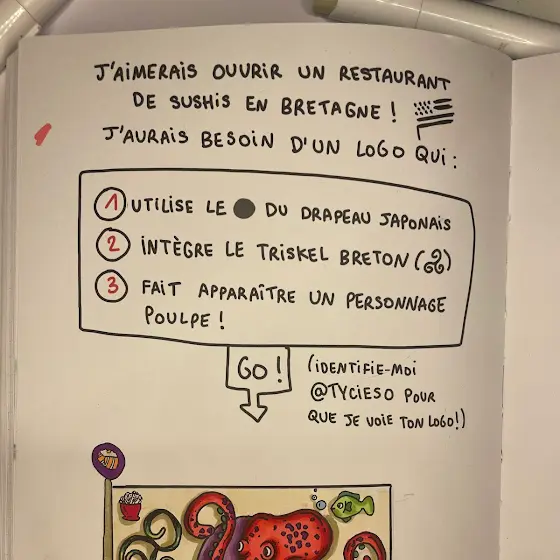 J'AIMERAIS OUVRIR UN RESTAURANT
DE SUSHIS EN BRETAGNE !
J'AURAIS BESOIN D'UN LOGO QUI :
1 UTILISE LE DU DRAPEAU JAPONAIS
2 INTÈGRE LE TRISKEL BRETON ( )
3 FAIT APPARAÎTRE UN PERSONNAGE
POULPE !
GO !
(IDENTIFIE-MOI
@TYCIESO POUR
QUE JE VOIE TON LOGO !)